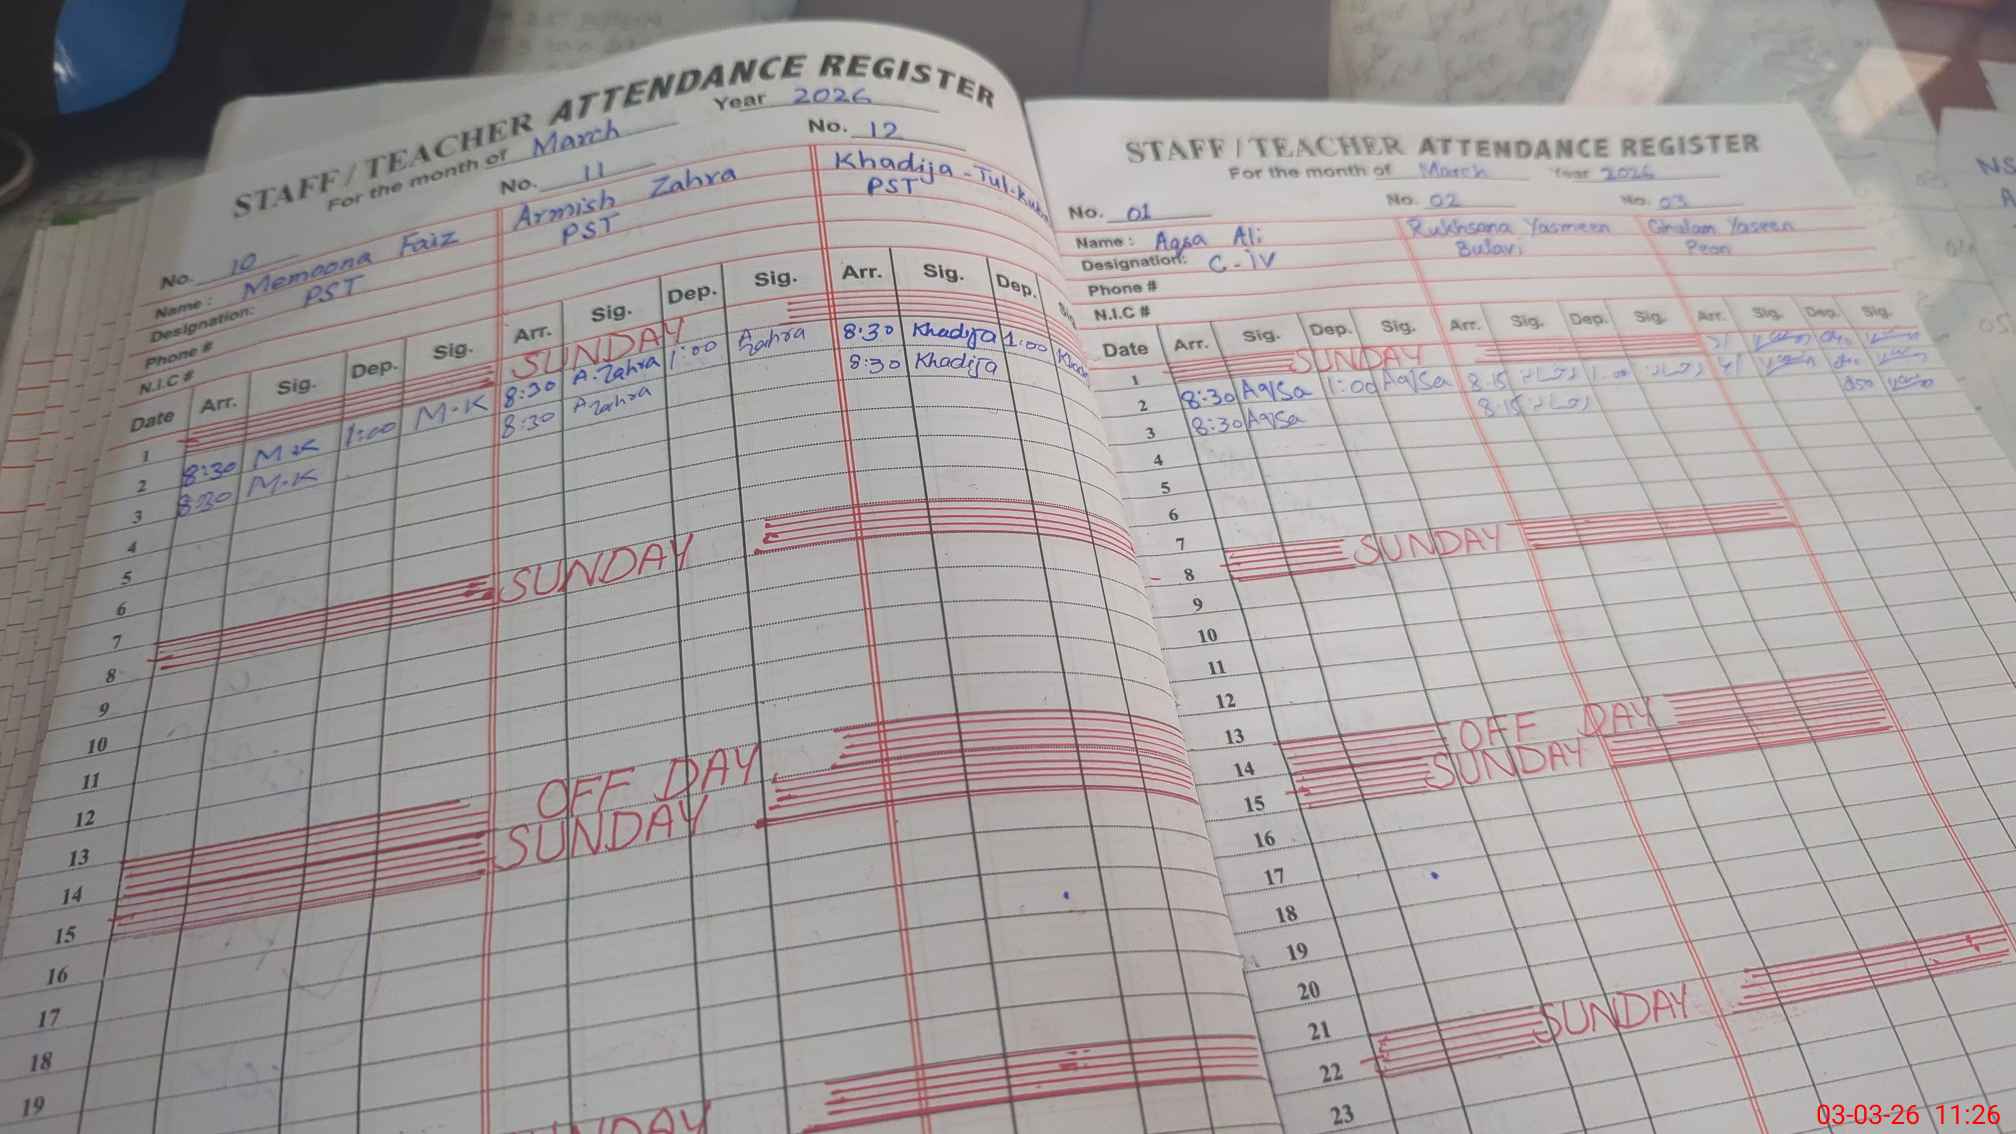 STAFF / TEACHER ATTENDANCE REGISTER
For the month of March Year 2026
No. 10 No. 11 No. 12
Name : Memoona Faiz Armish Zahra Khadija - Tul-
Designation: PST PST PST
Phone #
N.I.C #
Date Arr. Sig. Dep. Sig. Arr. Sig. Dep. Sig. Arr. Sig. Dep.
1 SUNDAY
2 8:30 M.K 1:00 M.K 8:30 A.Zahra 1:00 Azahra 8:30 Khadija 1:00
3 8:30 M.K 8:30 Azahra 8:30 Khadija
4
5
6
7
8 SUNDAY
9
10
11
12
13
14 OFF DAY
15 SUNDAY
16
17
18
19
STAFF / TEACHER ATTENDANCE REGISTER
For the month of March Year 2026
No. 01 No. 02 No. 03
Name : Aqsa Ali Rukhsana Yasmeen Ghulam Yaseen
Designation: C-iV Bulavi Peon
Phone #
N.I.C #
Date Arr. Sig. Dep. Sig. Arr. Sig. Dep. Sig. Arr. Sig. Dep. Sig.
1 SUNDAY
2 8:30 Aq/Sa 1:00 Aq/Sa 8.15 1.00
3 8:30 Aq/Sa 8.15
4
5
6
7
8 SUNDAY
9
10
11
12
13
14 OFF DAY
15 SUNDAY
16
17
18
19
20
21
22 SUNDAY
23
03-03-26 11:26